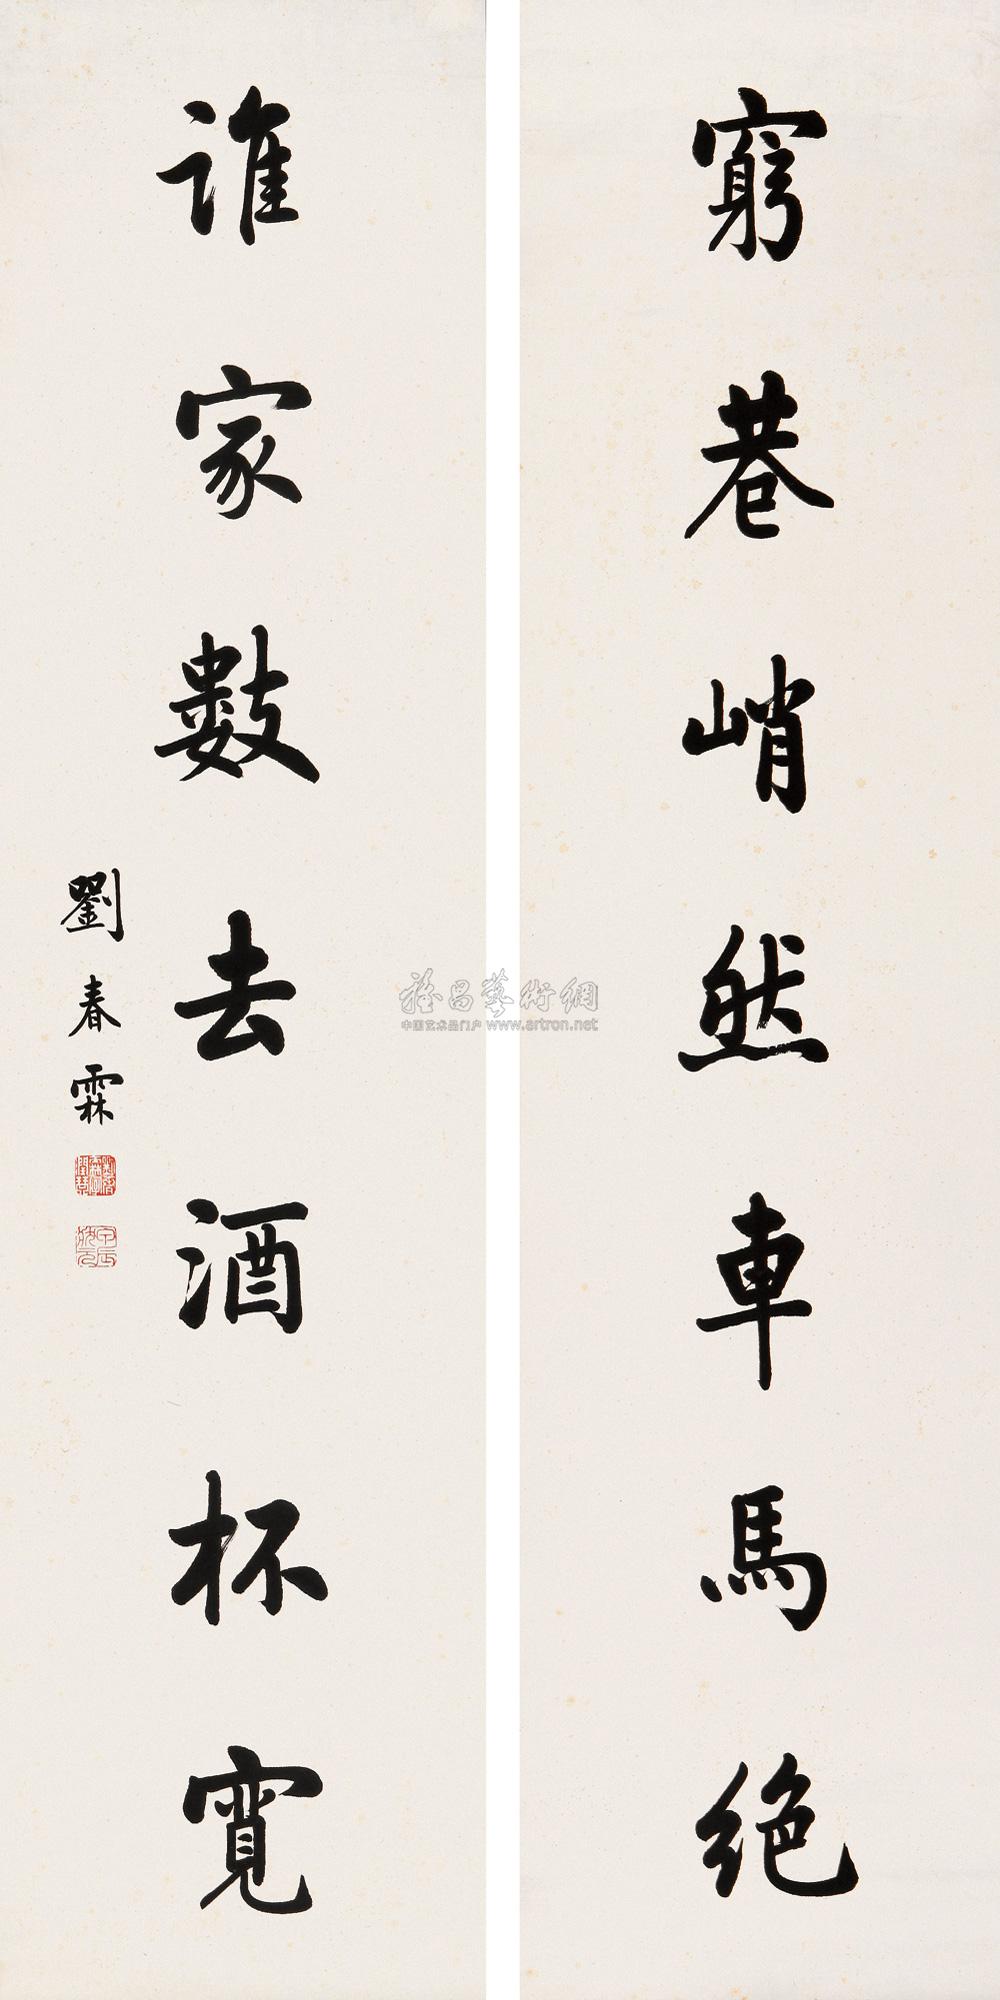 窮巷峭然車馬絶
誰家數去酒杯寬
劉春霖
雅昌藝術網
中国艺术品门户 www.artron.net